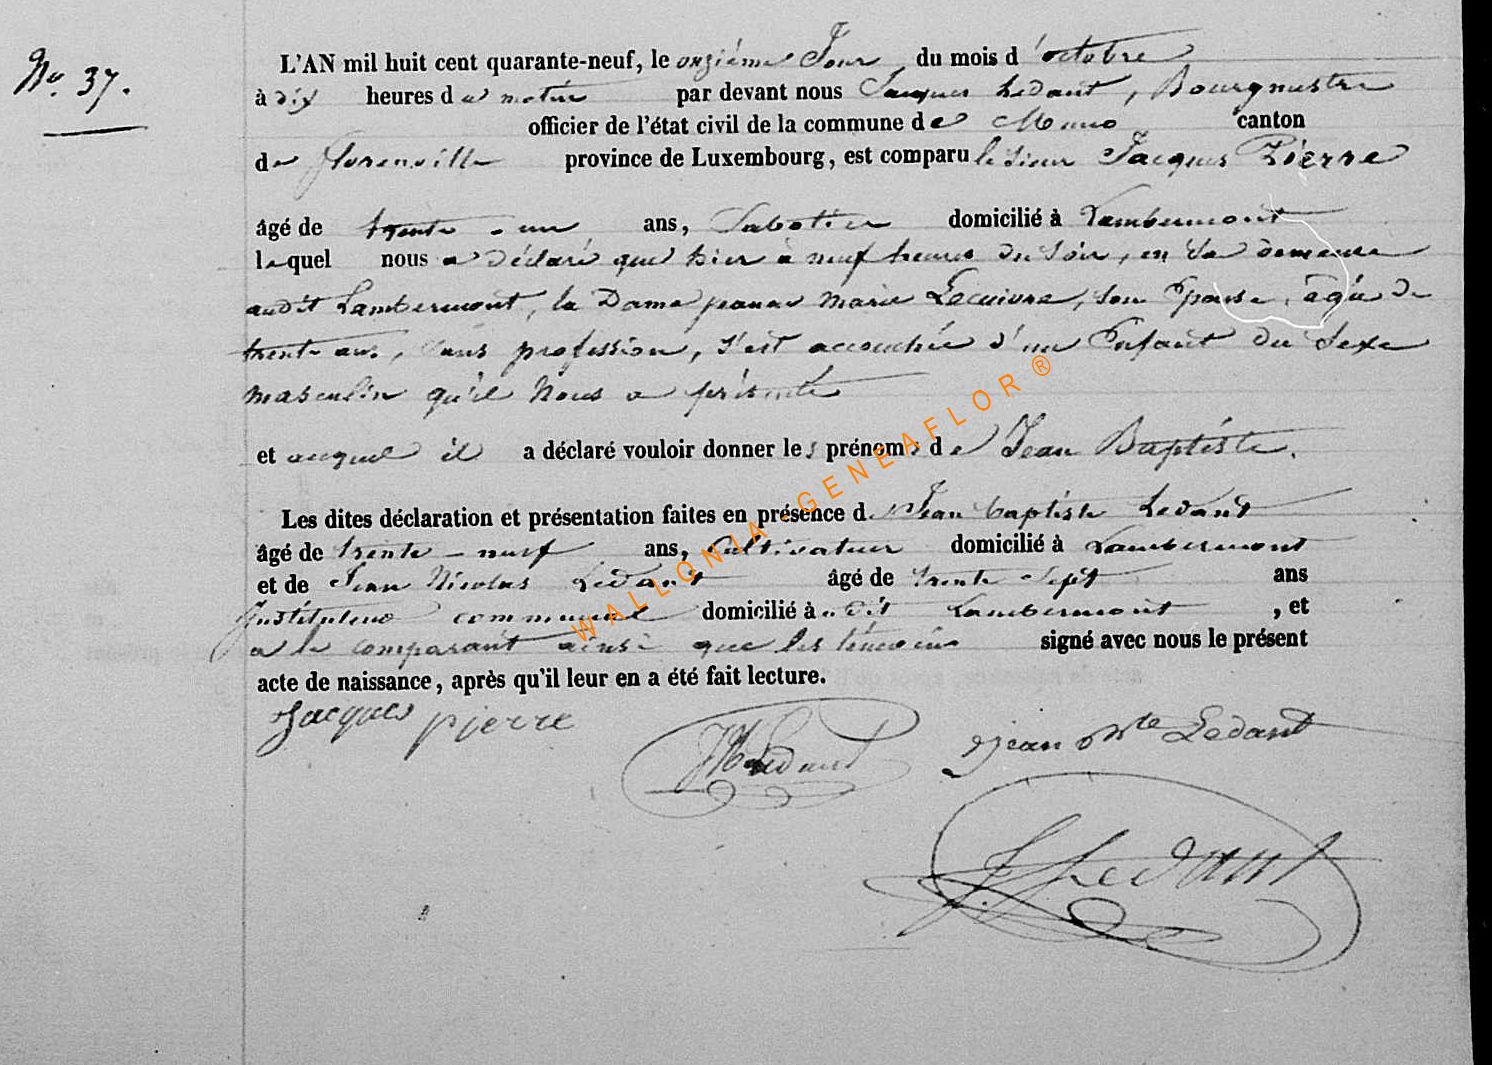 No. 37.
L'AN mil huit cent quarante-neuf, le onzième Jour du mois d'octobre
à dix heures du matin par devant nous Jacques Ledant, Bourgmestre
officier de l'état civil de la commune de Muno canton
de florenville province de Luxembourg, est comparu le sieur Jacques Pierre
âgé de trente-un ans, Sabotier domicilié à Lambermont
lequel nous a déclaré que hier à neuf heures du soir, en sa demeure
audit Lambermont, la Dame jeanne marie Lecuivre, son Epouse, âgée de
trente ans, sans profession, s'est accouchée d'un Enfant du Sexe
masculin qu'il Nous a présenté
et auquel il a déclaré vouloir donner les prénoms de Jean Baptiste.
Les dites déclaration et présentation faites en présence de Jean baptiste Ledant
âgé de trente-neuf ans, Cultivateur domicilié à Lambermont
et de Jean Nicolas Ledant âgé de trente Sept ans
Instituteur communal domicilié à dit Lambermont, et
a le comparant ainsi que les témoins signé avec nous le présent
acte de naissance, après qu'il leur en a été fait lecture.
Jacques pierre
JN Ledant
jean Bte Ledant
J. Ledant
WALLONIA-GENEAFLOR®